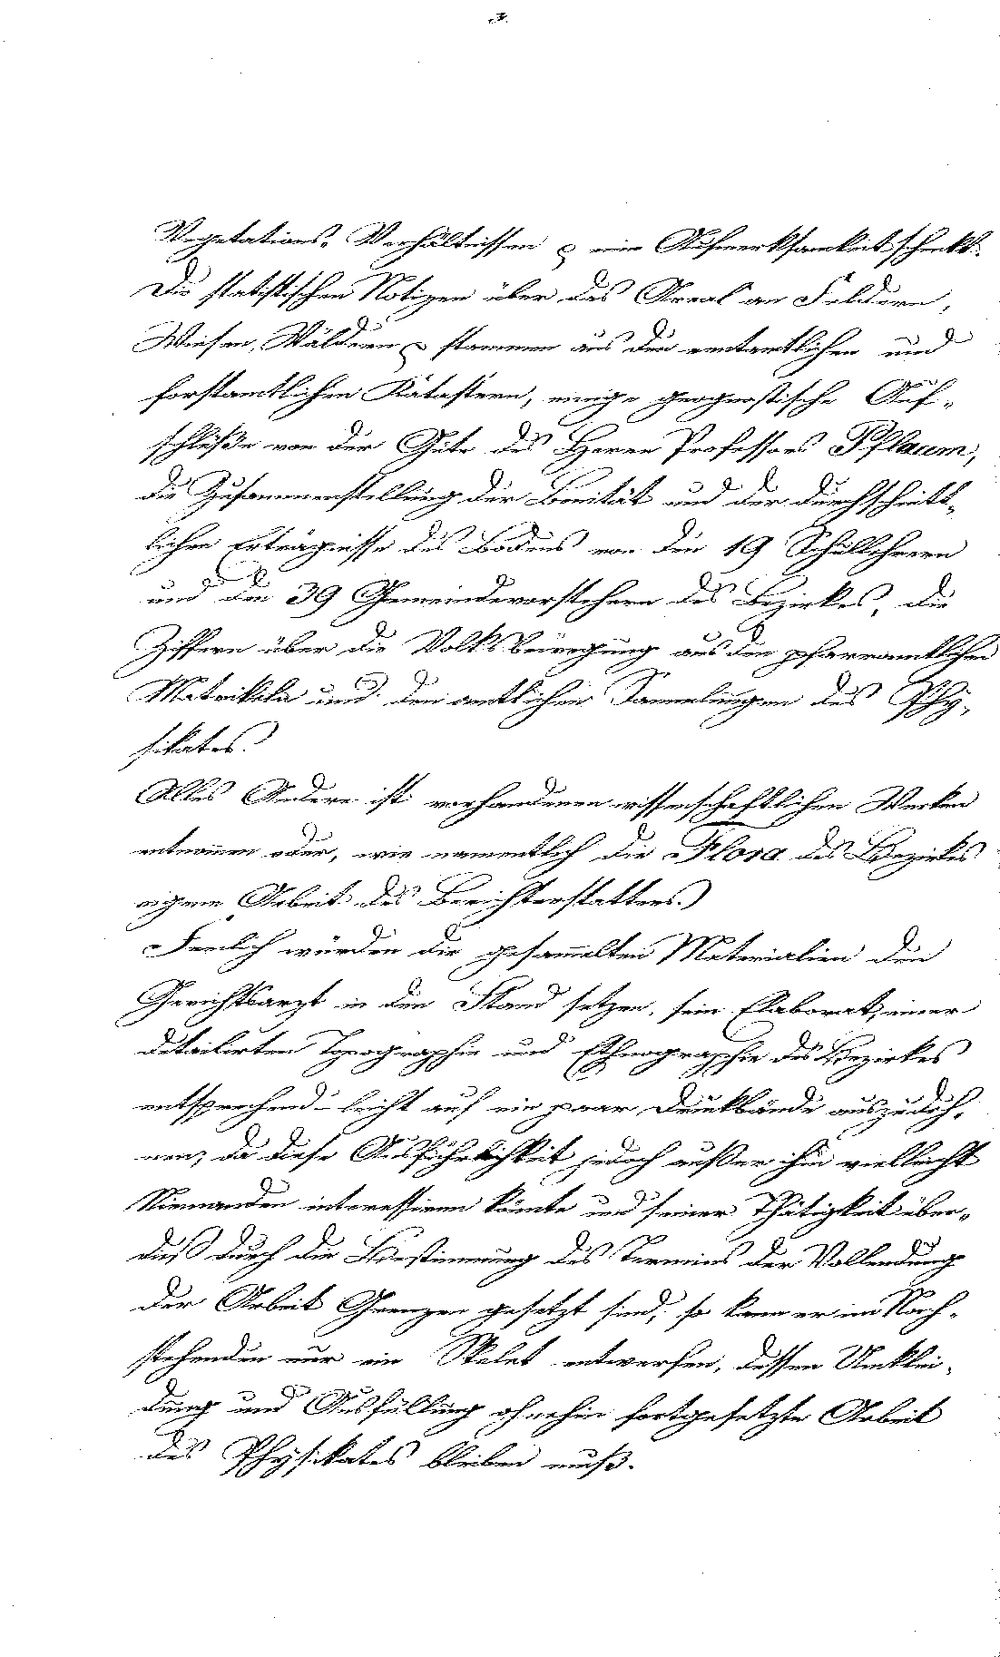 Vegetations-Verhältnissen & eine Aufmerksamkeit schenkt.
Die statistischen Notizen über das Areal an Feldern,
Wiesen, Wäldern & stammen aus den rentamtlichen und
forstamtlichen Katastern, einige geognostische Auf-
schlüße von der Güte des Herrn Professors Pflaum,
die Zusammenstellung der Bonität und der durchschnitt-
lichen Erträgnisse des Bodens von den 19 Schullehrern
und den 39 Gemeindevorstehern des Bezirkes, die
Ziffern über die Volksbewegung aus den pfarramtlichen
Matrikeln und den amtlichen Sammlungen des Phy-
sikates.
Alles Andere ist vorhandenen wissenschaftlichen Werken
entnom̅en oder, wie namentlich die Flora des Bezirkes
eigene Arbeit des Berichterstatters.
Freilich würden die gesam̅elten Materialien den
Gerichtsarzt in den Stand setzen, sein Elaborat, einer
detailirten Topographie und Ethnographie des Bezirkes
entsprechend – leicht auf ein paar Druckbände auszudeh-
nen; da diese Ausführlichkeit jedoch außer ihm vielleicht
Niemanden interessiren könnte und seiner Thätigkeit über-
dieß durch die Bestimmung des Termins der Vollendung
der Arbeit Grenzen gesetzt sind, so kann er im Nach-
stehenden nur ein Skelet entwerfen, dessen Umklei-
dung und Ausfüllung ohnehin fortgesetzte Arbeit
des Physikates bleiben muß.